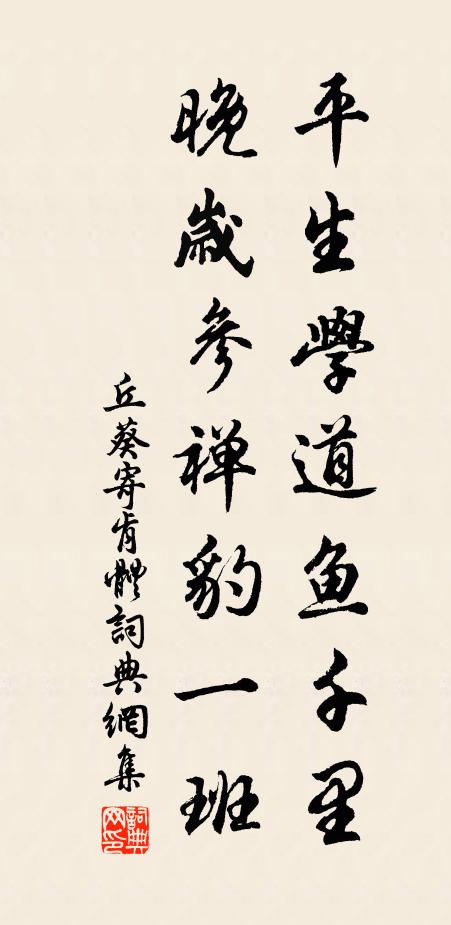 平生學道鱼千里
晚歲參禅豹一班
丘葵寄肯體詞典網集
詞典网印